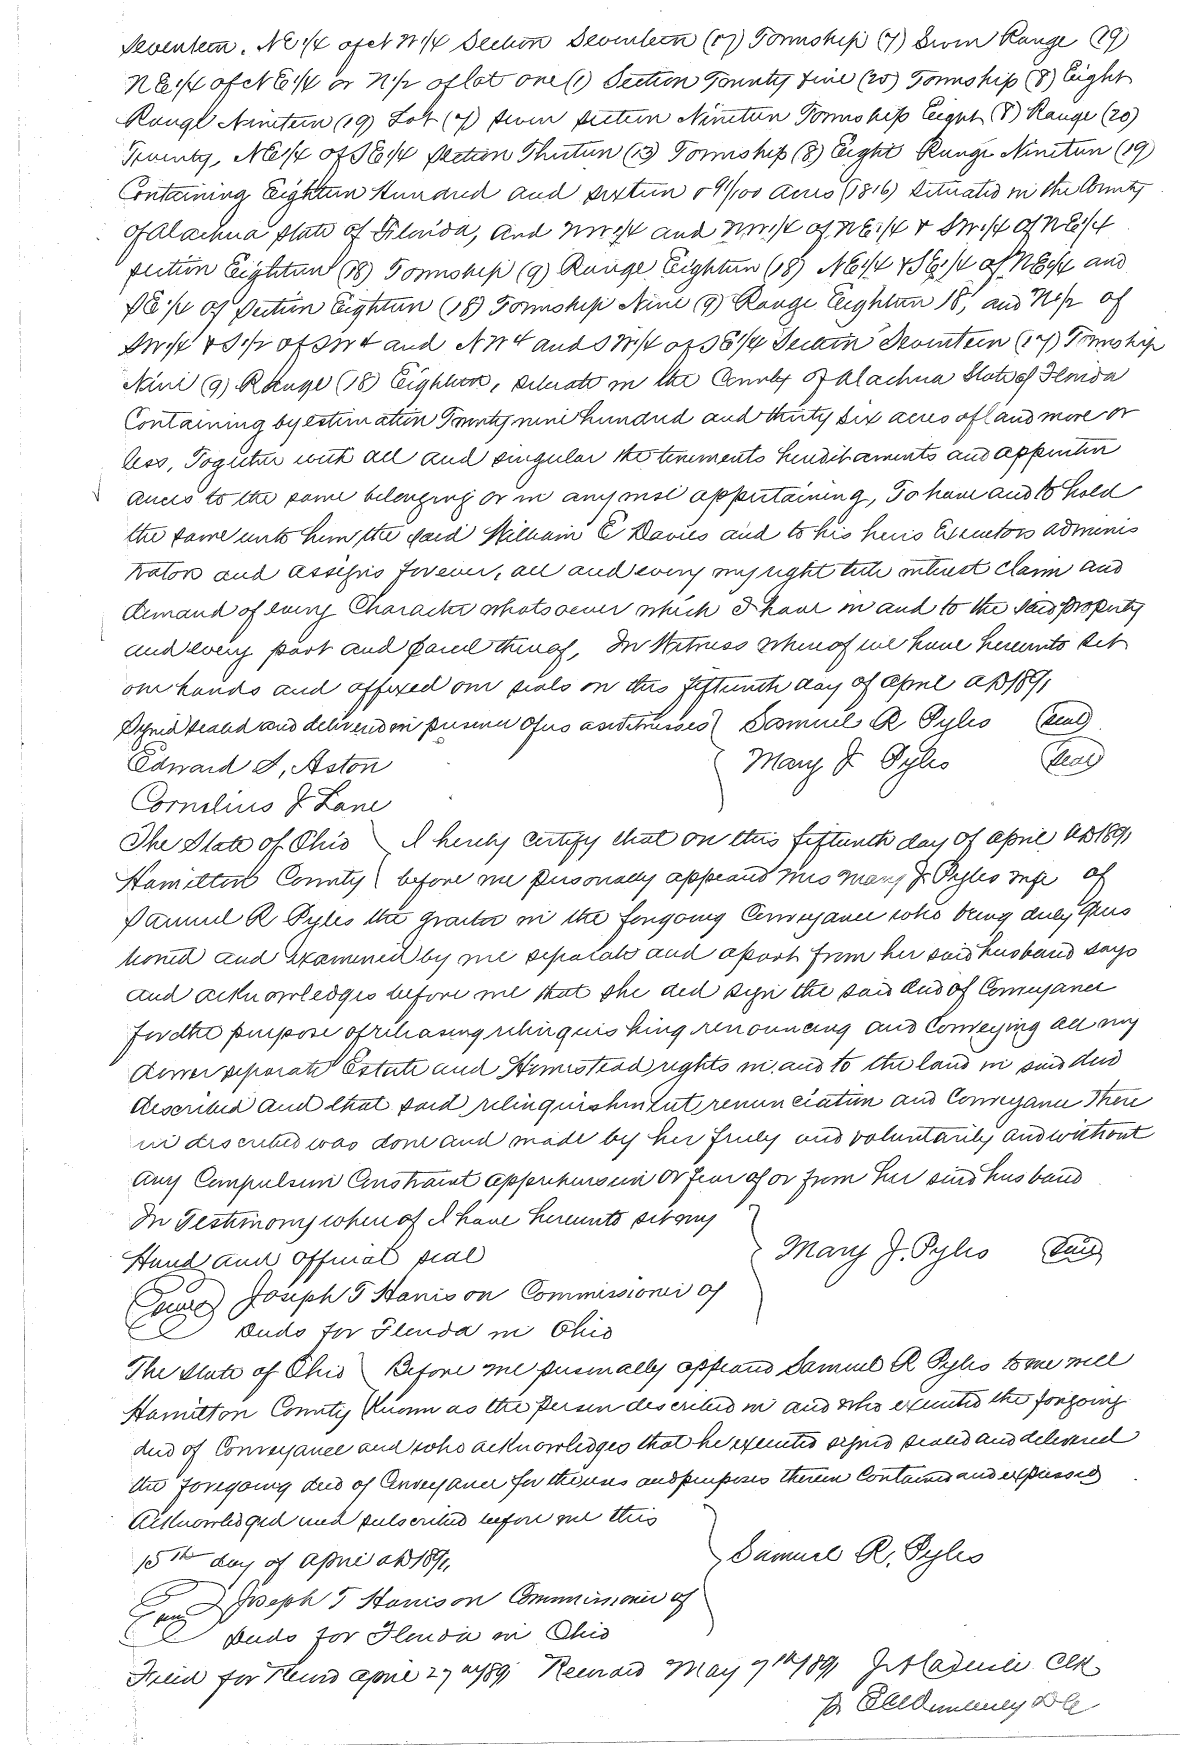 Seventeen. NE1/4 of NW1/4 Section Seventeen (17) Township (7) Seven Range (19)
NE1/4 of NE1/4 or N1/2 of lot one (1) Section Twenty five (25) Township (8) Eight
Range Nineteen (19) Lot (7) seven section Nineteen Township Eight (8) Range (20)
Twenty, NE1/4 of SE1/4 section Thirteen (13) Township (8) Eight Range Nineteen (19)
Containing Eighteen Hundred and sixteen & 91/100 acres (1816) situated in the County
of Alachua State of Florida, and NW1/4 and NW1/4 of NE1/4 & SW1/4 of NE1/4
section Eighteen (18) Township (9) Range Eighteen (18) NE1/4 & SE1/4 of NE1/4 and
SE1/4 of Section Eighteen (18) Township Nine (9) Range Eighteen 18, and N1/2 of
SW1/4 & S1/2 of SW4 and NW4 and SW1/4 of SE1/4 Section Seventeen (17) Township
Nine (9) Range (18) Eighteen, situate in the County of Alachua State of Florida
Containing by estimation Twenty nine hundred and thirty six acres of land more or
less, Together with all and singular the tenements hereditaments and appurten
ances to the same belonging or in any wise appertaining, To have and to hold
the same unto him, the said William E Davies and to his heirs Executors adminis
trators and assigns forever, all and every my right title interest claim and
demand of every Character whatsoever which I have in and to the said property
and every part and parcel thereof, In Witness whereof we have hereunto set
our hands and affixed our seals on this fifteenth day of April AD 1891
Signed sealed and delivered in presence of us as witnesses } Samuel R Pyles (seal)
Edward S, Aston Mary J Pyles (seal)
Cornelius J Lane
The State of Ohio } I hereby certify that on this fifteenth day of april AD 1891
Hamilton County } before me personally appeared Mrs Mary J Pyles wife of
Samuel R Pyles the grantor in the forgoing Conveyance who being duly ques
tioned and examined by me separate and apart from her said husband says
and acknowledges before me that she did sign the said deed of Conveyance
for the purpose of releasing relinquishing renouncing and Conveying all my
dower separate Estate and Homestead rights in and to the land in said deed
described and that said relinquishment renunciation and Conveyance There
in described was done and made by her freely and voluntarily and without
any Compulsion Constraint apprehension or fear of or from her said husband
In Testimony whereof I have hereunto set my
Hand and official seal } Mary J. Pyles (seal)
(seal) Joseph T Harrison Commissioner of
Deeds for Florida in Ohio
The State of Ohio } Before me personally appeared Samuel R Pyles to me well
Hamilton County } Known as the Person described in and who executed the forgoing
deed of Conveyance and who acknowledges that he executed signed sealed and delivered
the foregoing deed of Conveyance for the uses and purposes therein Contained and expressed
Acknowledged and subscribed before me this
15th day of April AD 1891, } Samuel R, Pyles
(seal) Joseph T Harrison Commissioner of
Deeds for Florida in Ohio
Filed for Record april 27 1891 Record May 7th 1891 Clk
DC